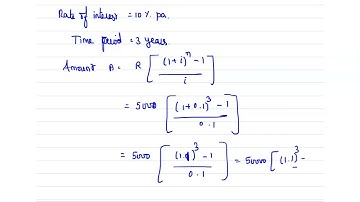 Rate of interest = 10 % pa.
Time period = 3 years
Amount A = R [ (1+i)^n - 1 / i ]
= 5000 [ (1+0.1)^3 - 1 / 0.1 ]
= 5000 [ (1.1)^3 - 1 / 0.1 ] = 50000 [ (1.1)^3 -